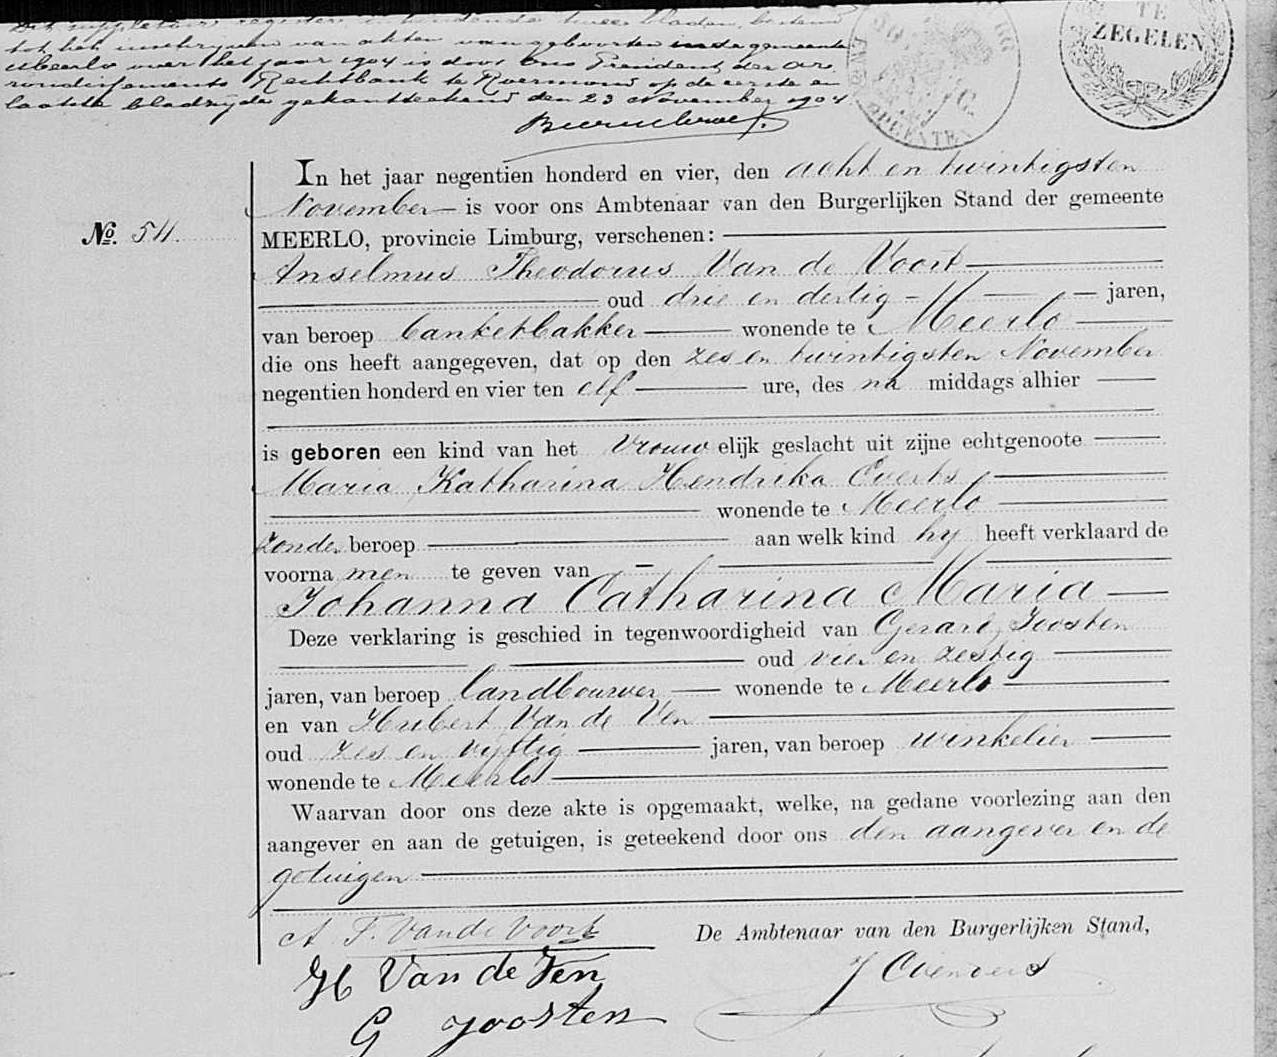 Dit suppletoir register inhoudende twee bladen, bestemd
tot het inschrijven van akten van geboorten in de gemeente
Meerlo over het jaar 1904 is door ons President der Ar-
rondissements Rechtbank te Roermond op de eerste en
laatste bladzijde gekantteekend den 23 November 1904
TE
ZEGELEN
OPCENTEN
In het jaar negentien honderd en vier, den acht en twintigsten
November is voor ons Ambtenaar van den Burgerlijken Stand der gemeente
No. 54.
MEERLO, provincie Limburg, verschenen:
Anselmus Theodorus Van de Voort
oud drie en dertig jaren,
van beroep banketbakker wonende te Meerlo
die ons heeft aangegeven, dat op den zes en twintigsten November
negentien honderd en vier ten elf ure, des na middags alhier
is geboren een kind van het vrouw elijk geslacht uit zijne echtgenoote
Maria Katharina Hendrika Everts
wonende te Meerlo
zonder beroep aan welk kind hy heeft verklaard de
voorna men te geven van
Johanna Catharina Maria
Deze verklaring is geschied in tegenwoordigheid van Gerard Joosten
oud vier en zestig
jaren, van beroep landbouwer wonende te Meerlo
en van Hubert Van de Ven
oud zes en vijftig jaren, van beroep winkelier
wonende te Meerlo
Waarvan door ons deze akte is opgemaakt, welke, na gedane voorlezing aan den
aangever en aan de getuigen, is geteekend door ons den aangever en de
getuigen
A T. Van de Voort
De Ambtenaar van den Burgerlijken Stand,
H Van de Ven
J
G Joosten